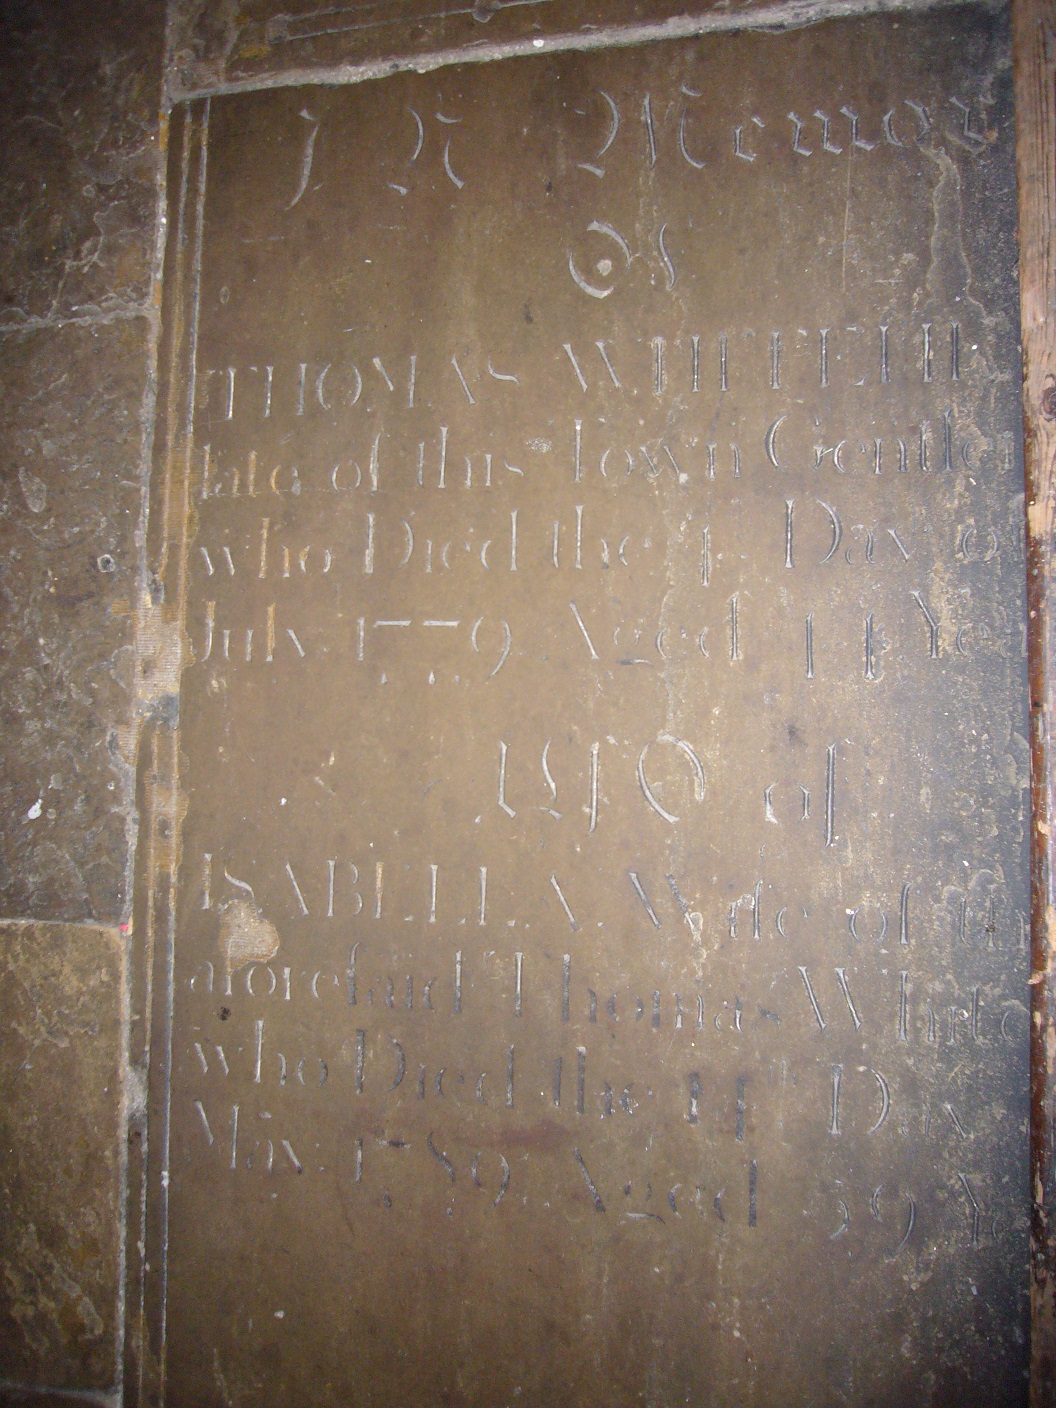 IN Memory
of
THOMAS WHITE
late of this Town Gentle
who Died the 1 Day o
July 1779 Aged 44 Ye
ALSO of
ISABELLA Wife of th
aforesaid Thomas White
who Died the 14 Da
May 1789 Aged 59 Ye